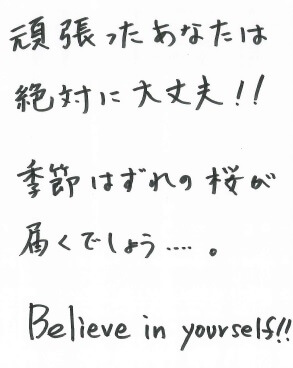 頑張ったあなたは
絶対に大丈夫!!
季節はずれの桜が
届くでしょう……。
Believe in yourself!!